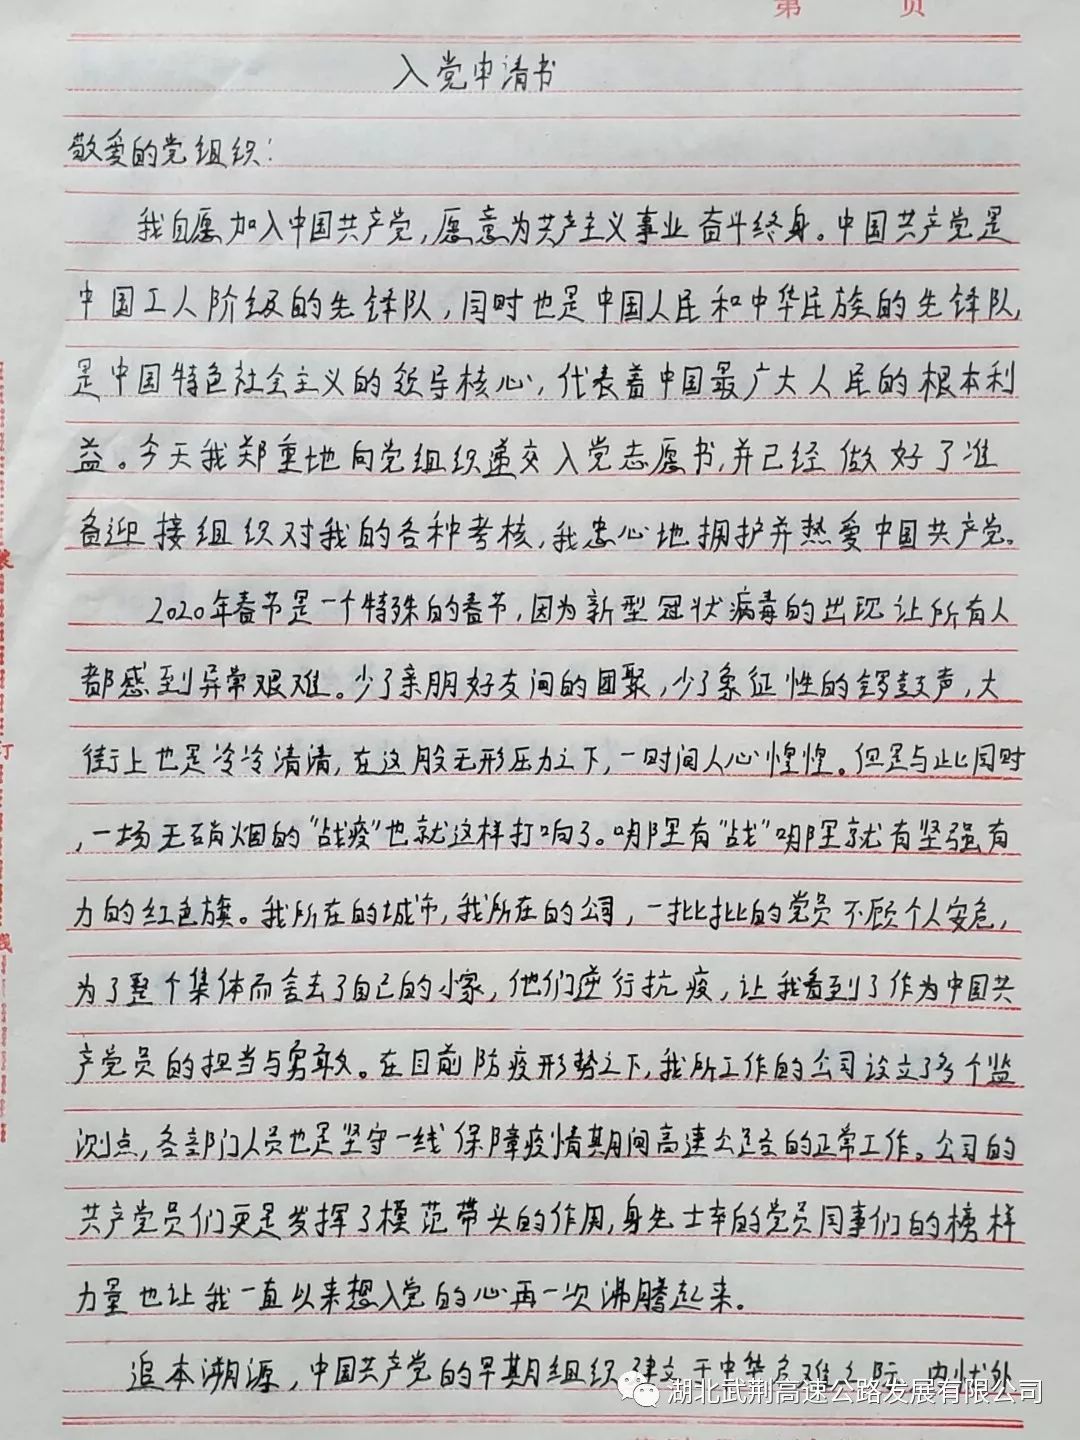 第 页
入党申请书
敬爱的党组织：
我自愿加入中国共产党,愿意为共产主义事业奋斗终身。中国共产党是
中国工人阶级的先锋队,同时也是中国人民和中华民族的先锋队,
是中国特色社会主义的领导核心,代表着中国最广大人民的根本利
益。今天我郑重地向党组织递交入党志愿书,并已经做好了准
备迎接组织对我的各种考核,我忠心地拥护并热爱中国共产党。
2020年春节是一个特殊的春节,因为新型冠状病毒的出现让所有人
都感到异常艰难。少了亲朋好友间的团聚,少了象征性的锣鼓声,大
街上也是冷冷清清,在这股无形压力之下,一时间人心惶惶。但是与此同时
,一场无硝烟的"战疫"也就这样打响了。哪里有"战"哪里就有坚强有
力的红色旗。我所在的城市,我所在的公司,一批批的党员不顾个人安危,
为了整个集体而舍去了自己的小家,他们逆行抗疫,让我看到了作为中国共
产党员的担当与勇敢。在目前防疫形势之下,我所工作的公司设立了多个监
测点,各部门人员也是坚守一线保障疫情期间高速公路的正常工作。公司的
共产党员们更是发挥了模范带头的作用,身先士卒的党员同事们的榜样
力量也让我一直以来想入党的心再一次沸腾起来。
追本溯源,中国共产党的早期组织建立于中华危难之际,内忧外
湖北武荆高速公路发展有限公司
装
订
线